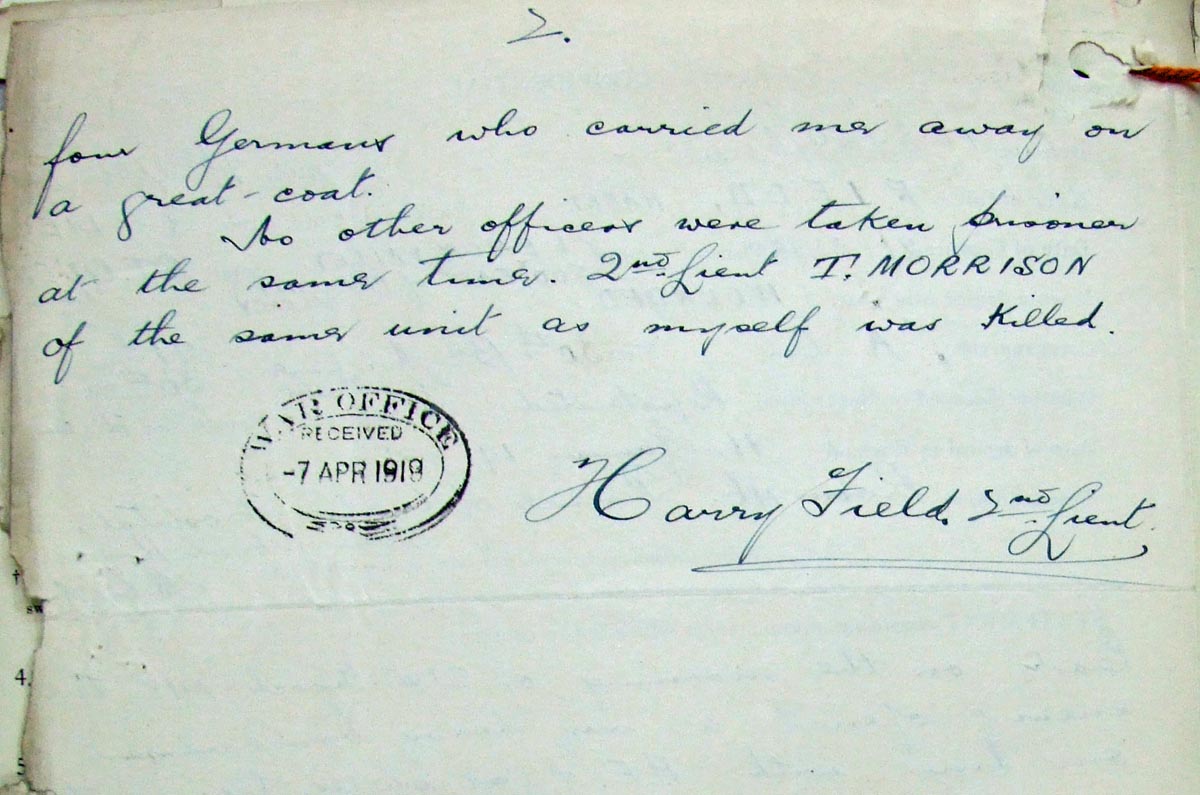 2.
four Germans who carried me away on
a great-coat.
No other officers were taken prisoner
at the same time. 2nd Lieut T. MORRISON
of the same unit as myself was killed.
WAR OFFICE
RECEIVED
-7 APR 1919
Harry Field. 2nd Lieut.
4.
5